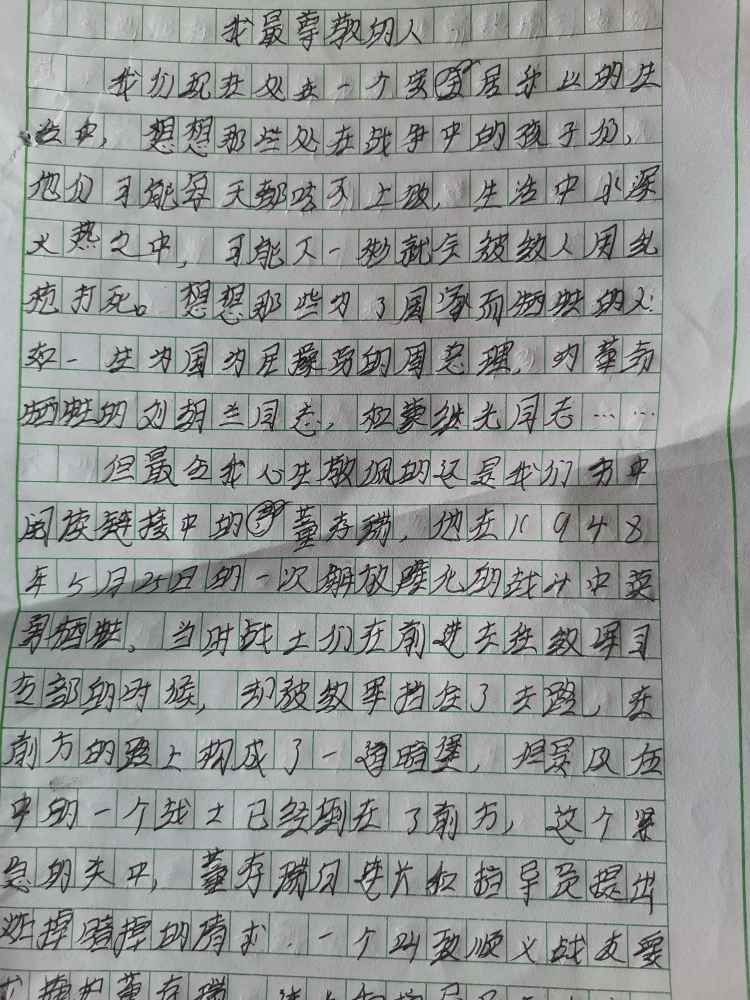 我最尊敬的人
我们现在处在一个安居乐业的生
活中，想想那些处在战争中的孩子们，
他们可能每天都吃不上饭，生活中水深
火热之中，可能下一秒就会被敌人用乱
枪打死。想想那些为了国家而牺牲的人
如一生为国为民操劳的周总理，为革命
牺牲的刘胡兰同志，和黄继光同志……
但最令我心生敬佩的还是我们书中
阅读链接中的董存瑞，他在1948
年5月25日的一次解放隆化的战斗中英
勇牺牲。当时战士们在前进去往敌军司
令部的时候，却被敌军挡住了去路，在
前方的路上构成了一道暗堡，但是队伍
中的一个战士已经倒在了前方，这个紧
急的关中，董存瑞向连长和指导员提出
炸掉暗掉的请求．一个叫致顺义战友要
求掩护董存瑞，连长和指导员